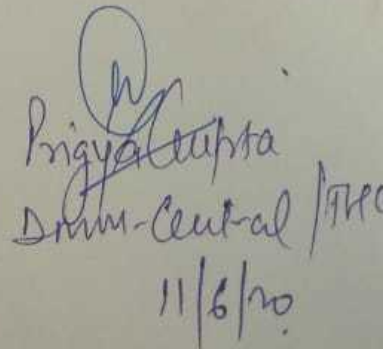 Prigya Gupta
DMM-Central / THC
11/6/20